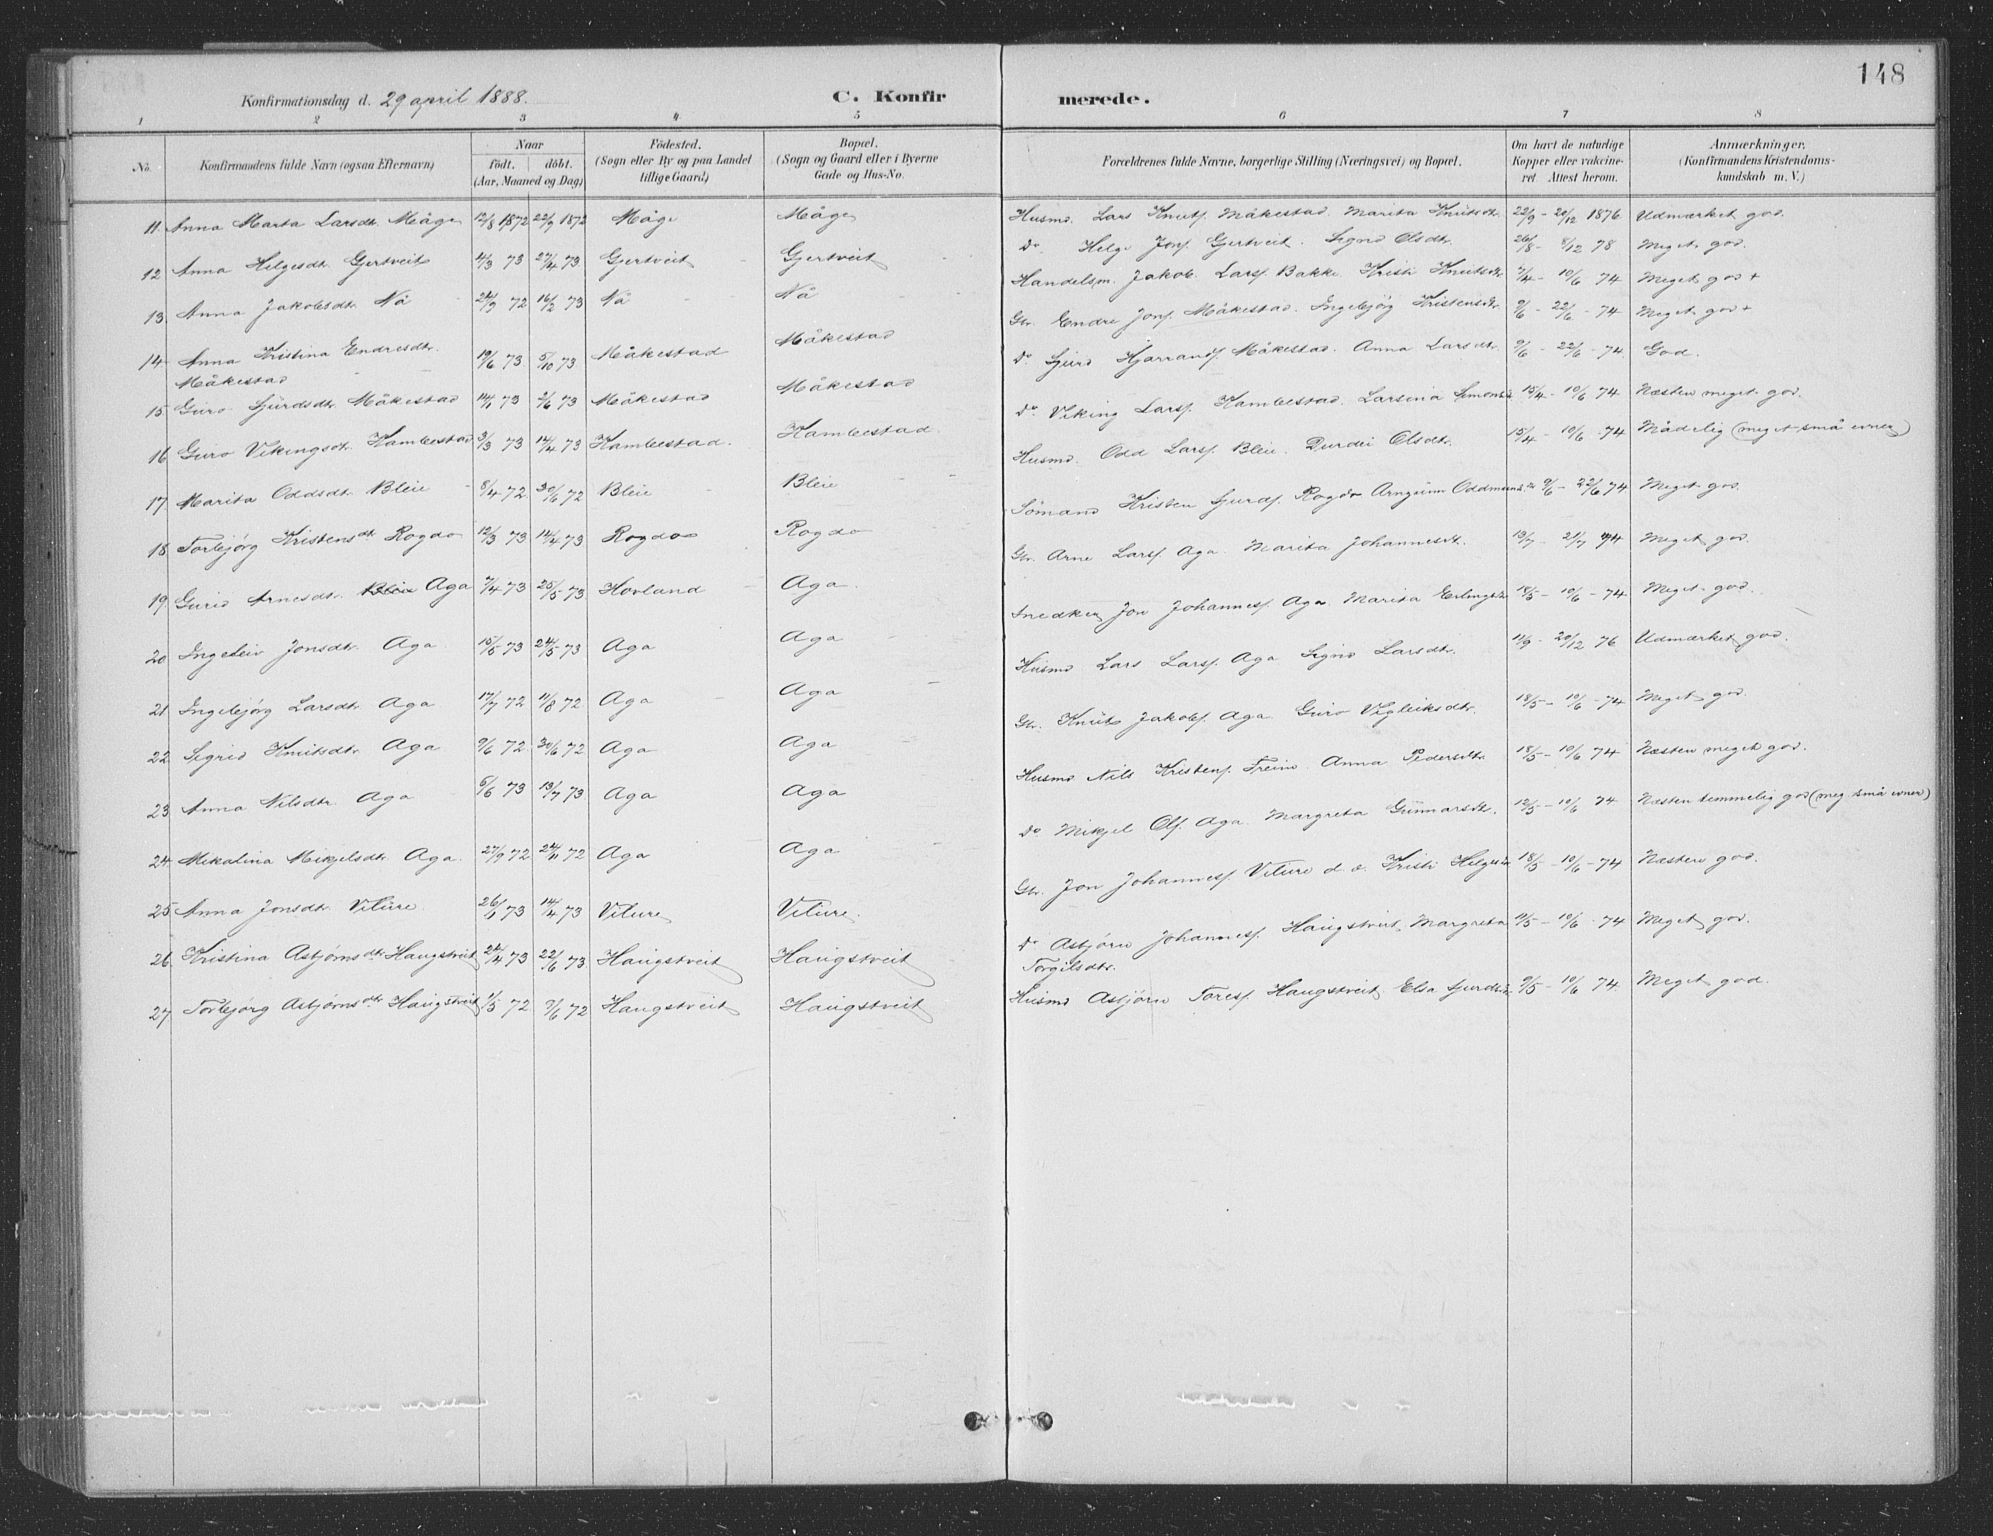 148
Konfirmationsdag d. 29 april 1888. C. Konfirmerede.
1 2 3 4 5 6 7 8
No. Konfirmandens fulde Navn (ogsaa Efternavn) Naar födt. döbt. (Aar, Maaned og Dag) Födested. (Sogn eller By og paa Landet tillige Gaard) Bopæl. (Sogn og Gaard eller i Byerne Gade og Hus-No. Forældrenes fulde Navne, borgerlige Stilling (Næringsvei) og Bopæl. Om havt de naturlige Kopper eller vakcineret. Attest herom. Anmærkninger, (Konfirmandens Kristendomskundskab m. V.)
11 Anna Marta Larsdtr. Måge 12/8 1872 22/9 1872 Måge Måge Husmd. Lars Knuts. Måkestad. Marita Knutsdtr. 22/9 - 20/12 1876 Udmærket god.
12 Anna Helgesdt. Gjertveit 4/3 73 27/4 73 Gjertveit Gjertveit Do Helge Jons. Gjertveit. Signe Olsdtr. 26/8 - 8/12 78 Meget god.
13. Anna Jakobsdtr. Nå 24/9 72 16/2 73 Nå Nå Handelsm. Jakob Larss. Bakke. Kristi Knutsdtr 7/4 - 10/6 74 Meget god +
14 Anna Kristina Endresdtr. Måkestad 19/6 73 5/10 73 Måkestad Måkestad Gbr. Endre Jons. Måkestad. Ingebjørg Kristensdtr. 9/6 - 22/6 - 74 Meget god +
15 Guro Sjurdsdtr. Måkestad 14/1 73 2/6 73 Måkestad Måkestad Do Sjurd Hjarrands. Måkestad. Anna Larsdtr. 9/6 - 22/6 - 74. God.
16 Guro Vikingsdt. Hambestad 3/3 73 14/4 73 Hambestad. Hambestad. Do Viking Larss. Hambestad. Larsina Simonsdtr 15/4 - 10/6 74 Næsten meget god.
17 Marita Oddsdtr. Bleie 8/4 72 30/6 72 Bleie Bleie Husmd. Odd Larss. Bleie. Durdei Olsdtr. 15/4 - 10/6 - 74 Mådelig (meget små evner)
18 Torbjørg Kristensdtr. Rogdo 12/3 73 14/4 73 Rogdo Rogdo Sömand Kristen Sjurds. Rogdo Arngunn Oddmunds. 9/6 - 22/6 74 Meget god.
19. Gurid Arnesdtr. Bleie Aga 7/4 73 25/5 73 Hovland Aga. Gbr. Arne Larss. Aga. Marita Johannesdt. 13/7 - 21/7 74 Meget god.
20 Ingeleiv Jonsdtr. Aga 15/5 73 24/5 73 Aga Aga Snedker Jon Johanness. Aga. Marita Erlingsdtr 18/5 - 10/6 - 74 Meget god.
21 Ingebjørg Larsdtr. Aga 17/7 72 11/8 72 Aga Aga Husmd Lars Larss. Aga Signe Larsdtr. 11/9 - 20/12 76 Udmærket god.
22 Sigrid Knutsdtr. Aga 9/6 72 30/6 72 Aga Aga Gbr. Knut Jakobs. Aga. Guro Vigleiksdtr. 18/5 - 10/6 - 74 Meget god.
23 Anna Nilsdtr. Aga 6/6 73 13/7 73 Aga Aga Husmd Nils Kristens. Freim. Anna Pedersdtr 18/5 - 10/6 74 Næsten meget god.
24 Mikalina Mikjelsdtr. Aga. 27/9 72 24/11 72 Aga Aga Do Mikjel Ols. Aga. Margreta Gunnarsdtr. 12/5 - 10/6 74 Næsten temmelig god (meg. små evner)
25 Anna Jonsdtr. Viture 26/1 73 14/4 73 Viture Viture. Gbr. Jon Johanness. Viture d. e. Kristi Helgesdtr 18/5 - 10/6 - 74 Næsten god.
26 Kristina Asbjørnsdtr Haugstveit 24/4 73 22/6 73 Haugstveit Haugstveit Do Asbjørn Johanness. Haugstveit. Margreta Torgilsdtr. 11/5 - 10/6 - 74 Meget god.
27 Torbjørg Asbjørnsdtr Haugstveit 1/5 72 9/6 72 Haugstveit Haugstveit Husmd Asbjørn Toress. Haugstveit Elsa Sjurdsdtr 9/5 - 10/6 74. Meget god.